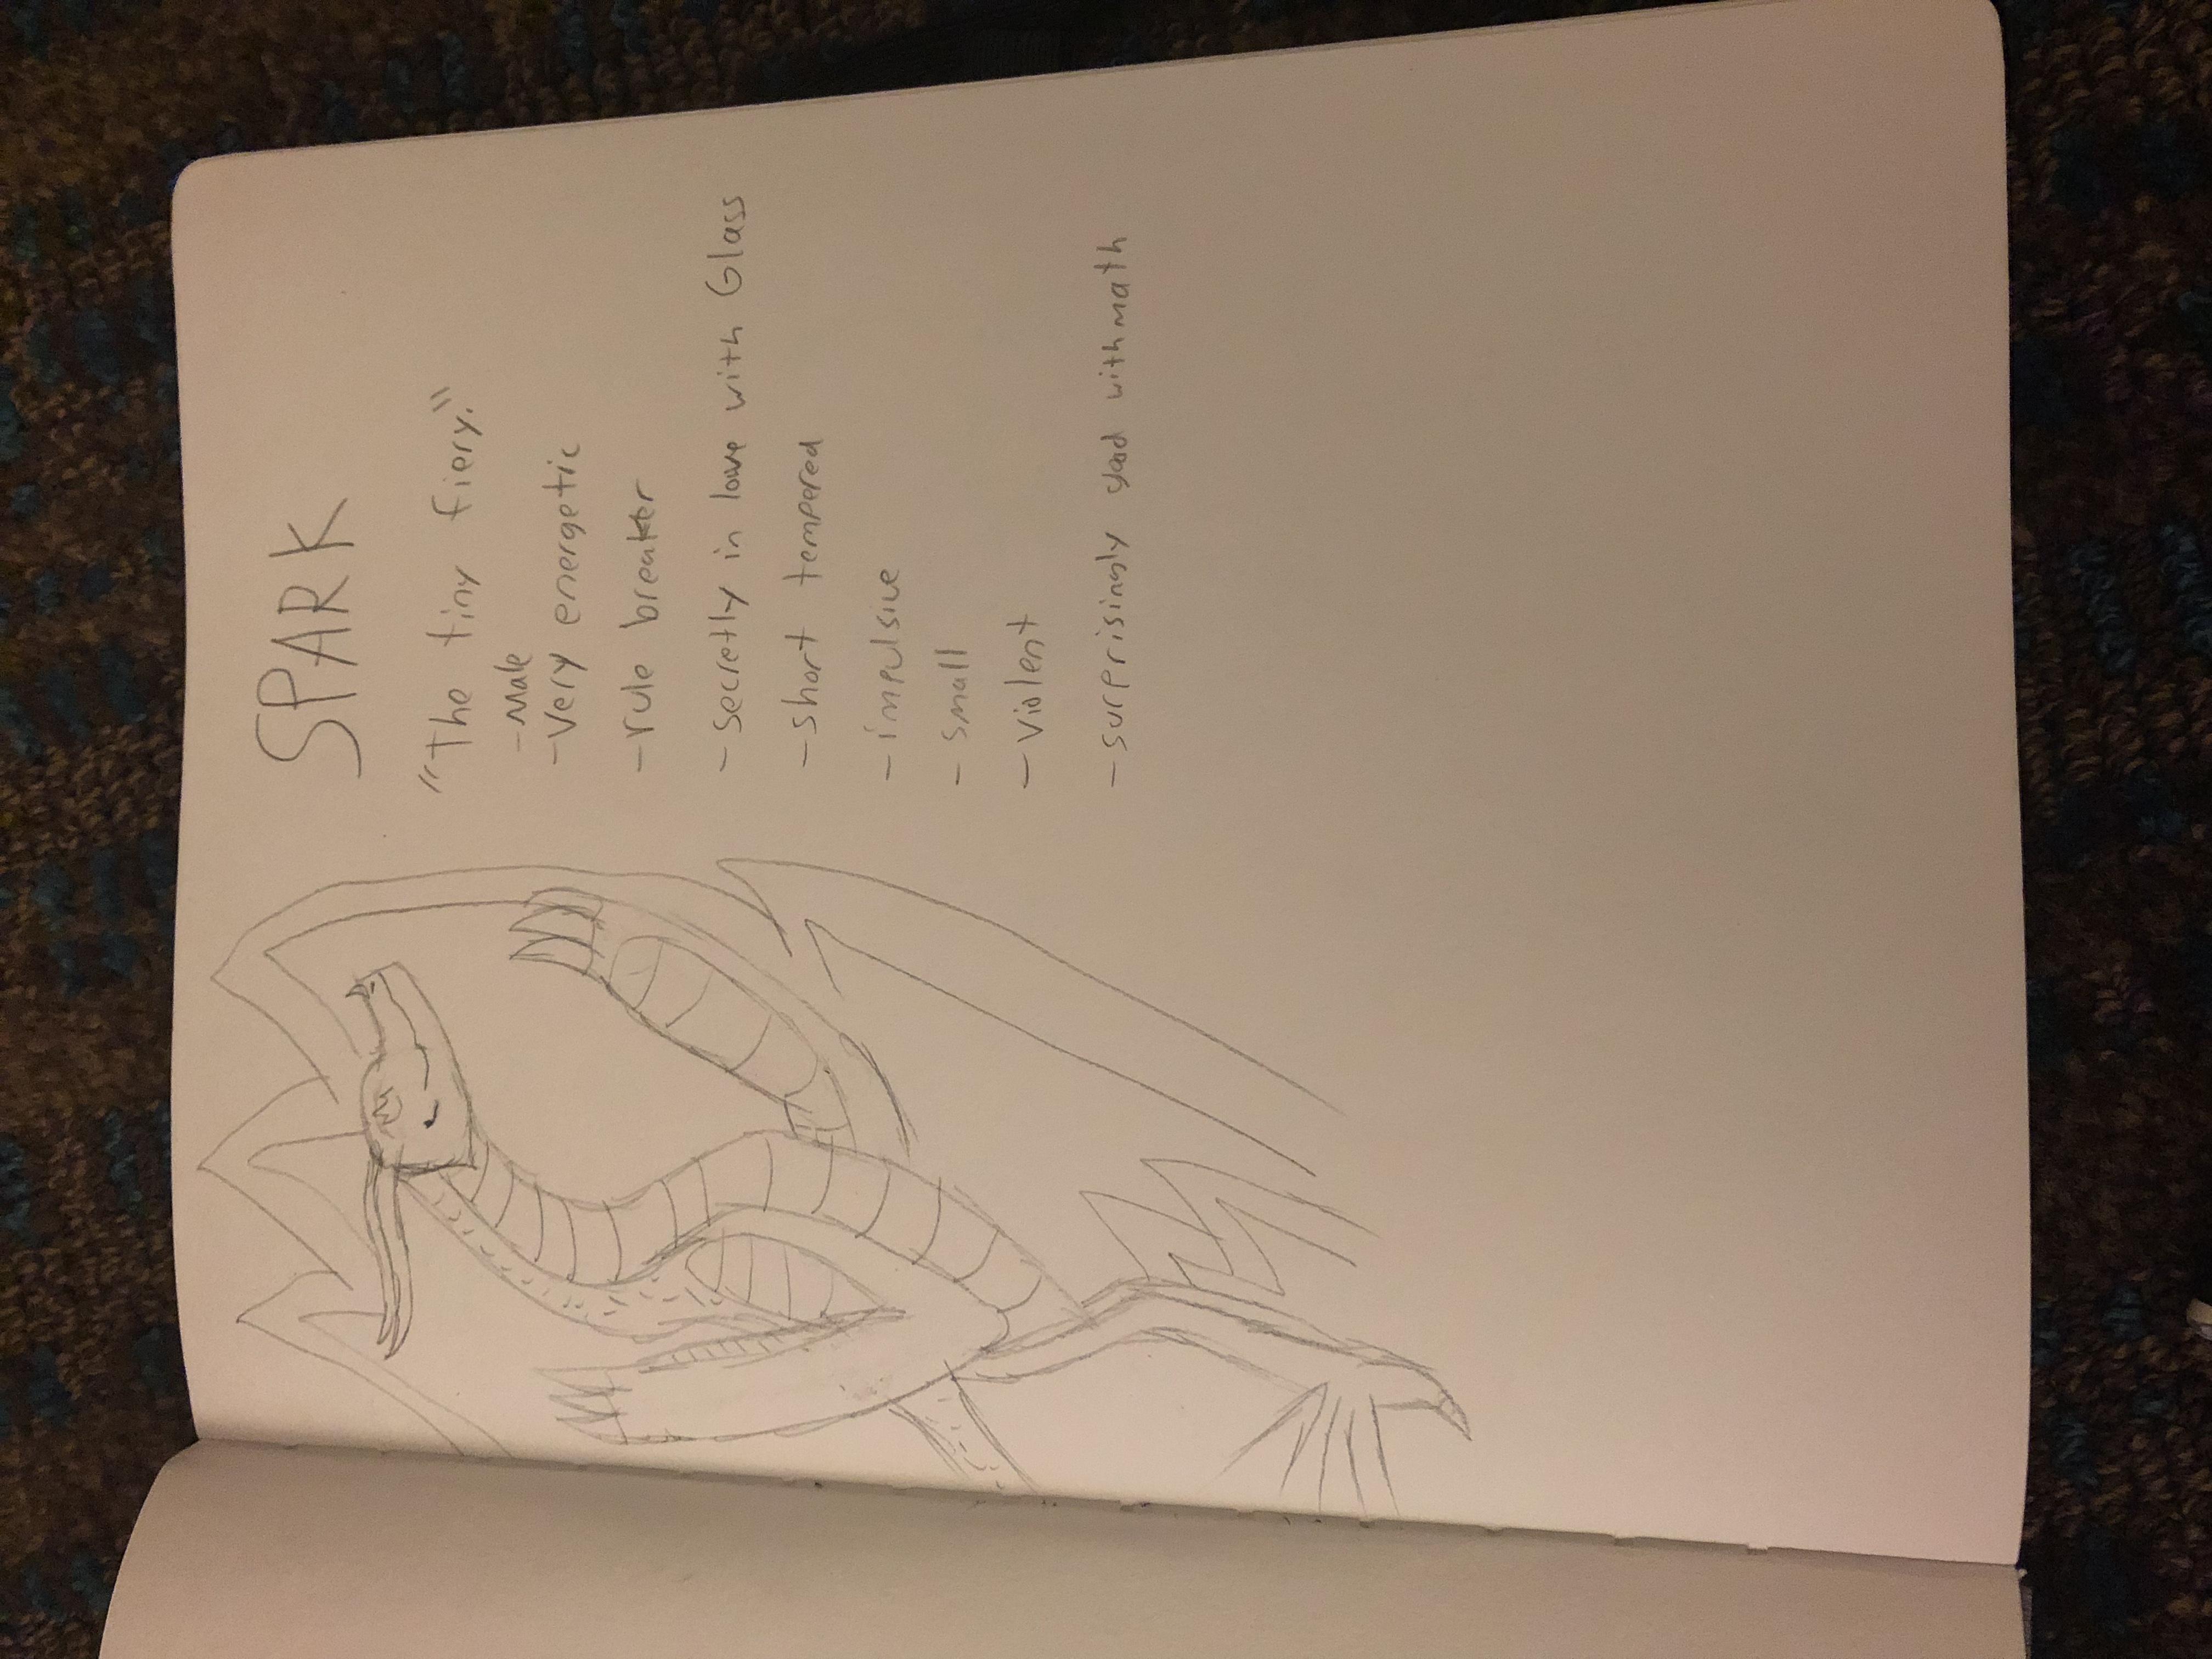 SPARK
"the tiny fiery."
- Male
- Very energetic
- rule breaker
- Secretly in love with Glass
- short tempered
- impulsive
- small
- violent
- surprisingly good with math